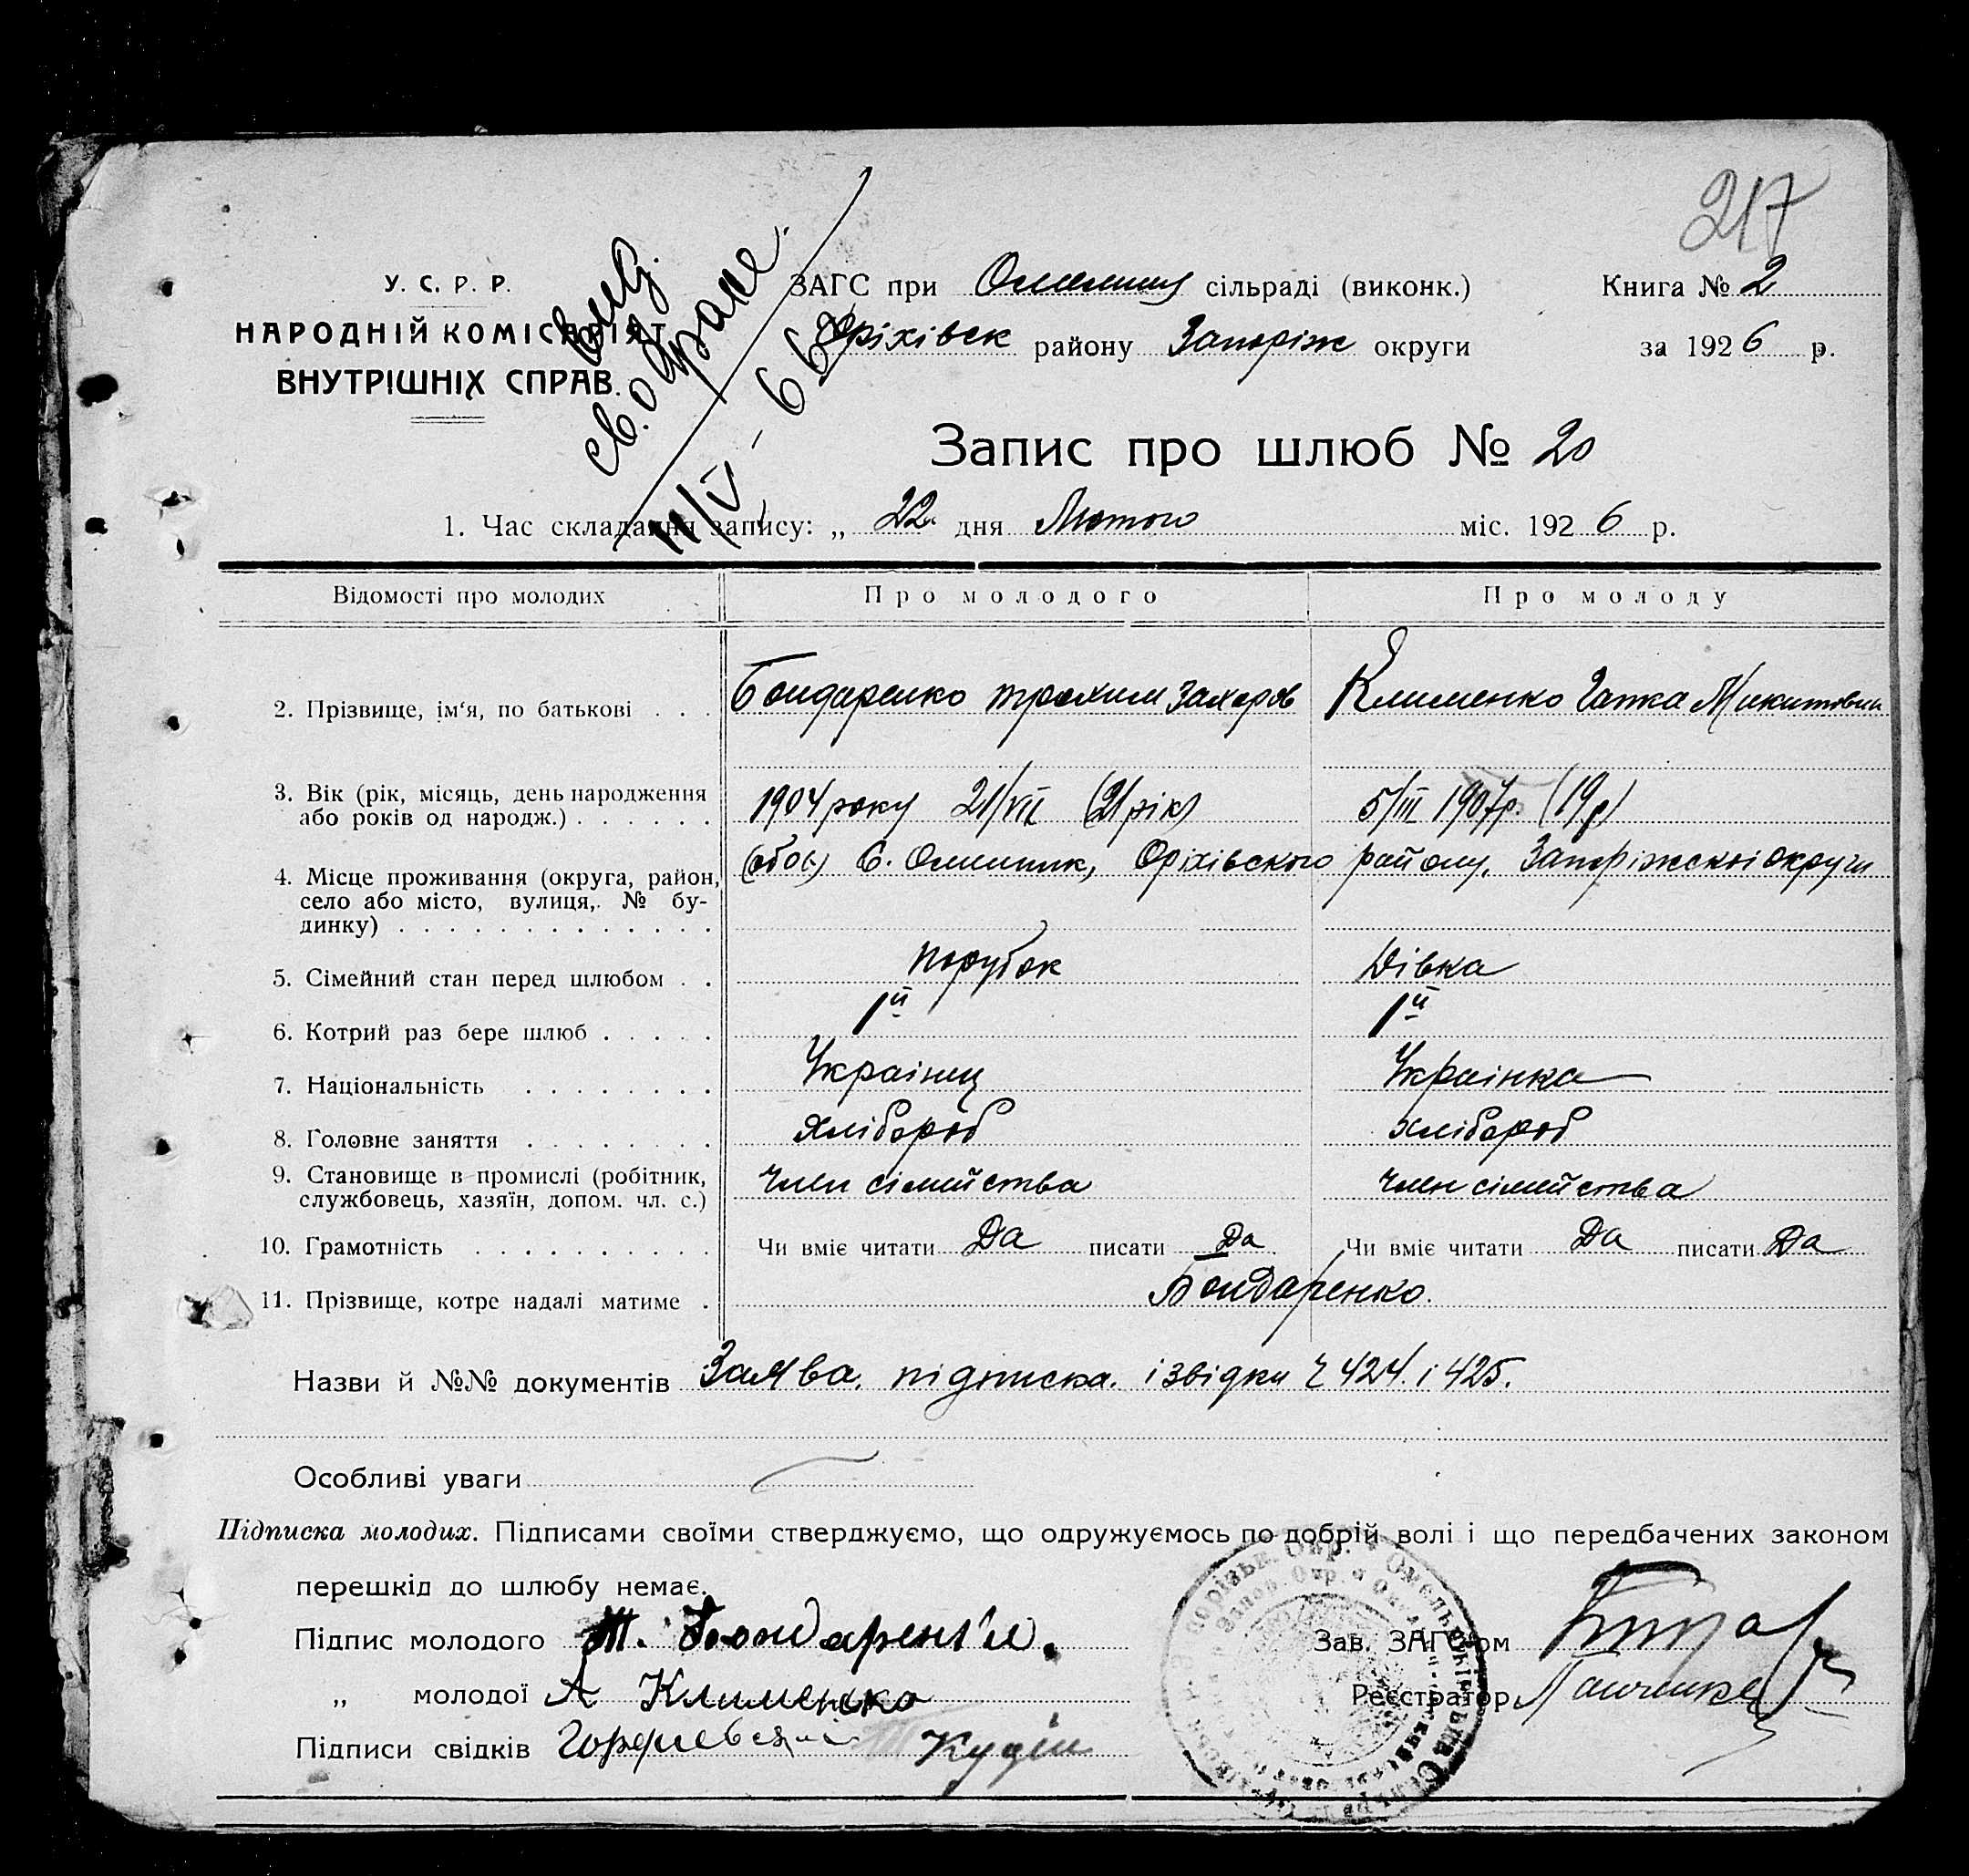 217
У. С. Р. Р.
НАРОДНІЙ КОМІСАРІЯТ
ВНУТРІШНІХ СПРАВ.
св. о браке
11/IV - 66
ЗАГС при сільраді (виконк.)
Оріхівск району Запоріж округи
Книга № 2
за 1926 р.
Запис про шлюб № 20
1. Час складання запису: „ 22 дня Лютого міс. 1926 р.
Відомості про молодих Про молодого Про молоду
2. Прізвище, ім‘я, по батькові . . . Бондаренко Трохим Захаров Клименко Гапка Микитовна
3. Вік (рік, місяць, день народження 1904 року 21/VII (21 рік) 5/III 1907р. (19р)
або років од народж.) . . . . . .
4. Місце проживання (округа, район, (обоє) С. Омельник, Оріхівского району, Запоріжскоі округи
село або місто, вулиця,. № бу-
динку) . . . . . . . . . . . . .
5. Сімейний стан перед шлюбом . . Порубок Дівка
6. Котрий раз бере шлюб . . . . . 1й 1й
7. Національність . . . . . . . . Украінец Украінка
8. Головне заняття . . . . . . . . Хлібороб Хлібороб
9. Становище в промислі (робітник, Член сімейства Член сімейства
службовець, хазяїн, допом. чл. с.)
10. Грамотність . . . . . . . . . . Чи вміє читати Да писати Да Чи вміє читати Да писати Да
11. Прізвище, котре надалі матиме . Бондаренко.
Назви й №№ документів Заява. підписка. і звідки Ч 424. і 425.
Особливі уваги
Підписка молодих. Підписами своїми стверджуємо, що одружуємось по добрій волі і що передбачених законом
перешкід до шлюбу немає.
Підпис молодого Т. Бондаренко.
„ молодої А Клименко
Підписи свідків
Зав. ЗАГС'ом
Реєстратор